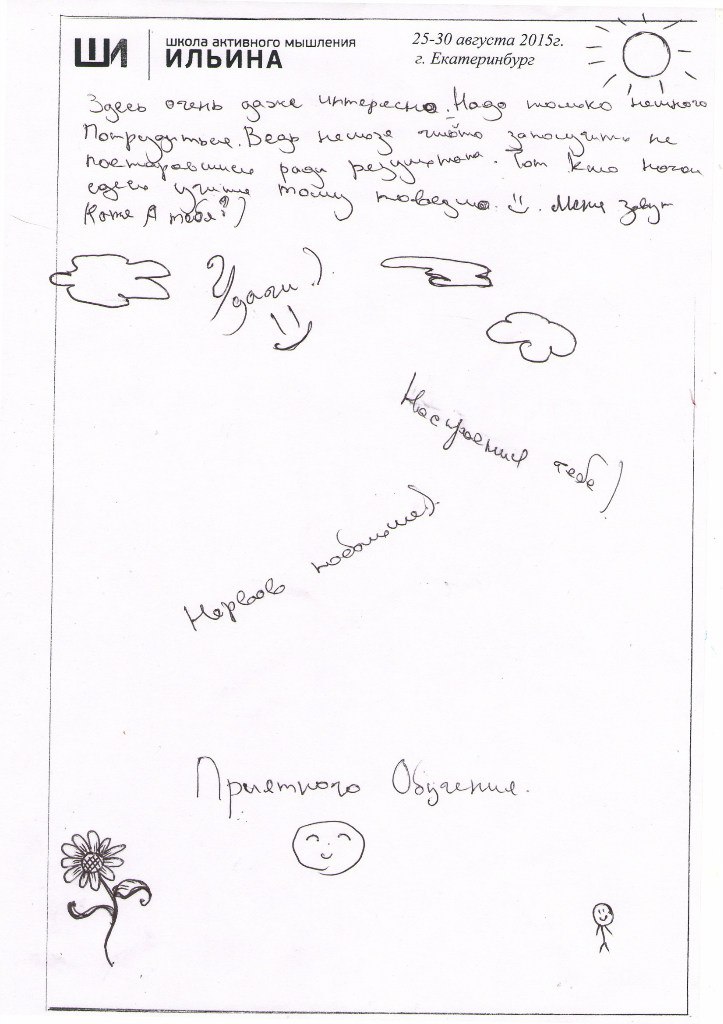 ШИ
школа активного мышления
ИЛЬИНА
25-30 августа 2015г.
г. Екатеринбург
Здесь очень даже интересно. Надо только немного
Потрудиться. Ведь
не
постаравшись ради результата. Тот кто начал
здесь тому повезло. Меня зовут
Катя А тебя?)
Удачи :)
Настроения тебе)
Нервов побольше).
Приятного Обучения.